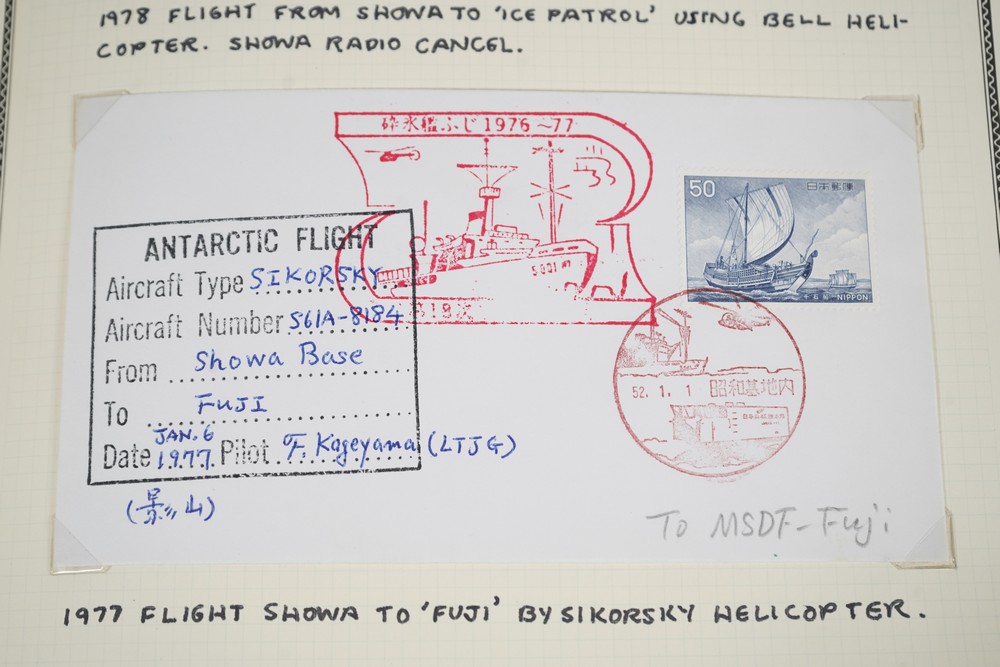 1978 FLIGHT FROM SHOWA TO 'ICE PATROL' USING BELL HELI-
COPTER. SHOWA RADIO CANCEL.
砕氷艦ふじ 1976~77
5001
第18次
50 日本郵便
千石船 NIPPON
ANTARCTIC FLIGHT
Aircraft Type SIKORSKY
Aircraft Number S61A-8184
From Showa Base
To FUJI
Date JAN. 6 1977. Pilot F. Kageyama (LTJG)
(影山)
52. 1. 1 昭和基地内
To MSDF-Fuji
1977 FLIGHT SHOWA TO 'FUJI' BY SIKORSKY HELICOPTER.